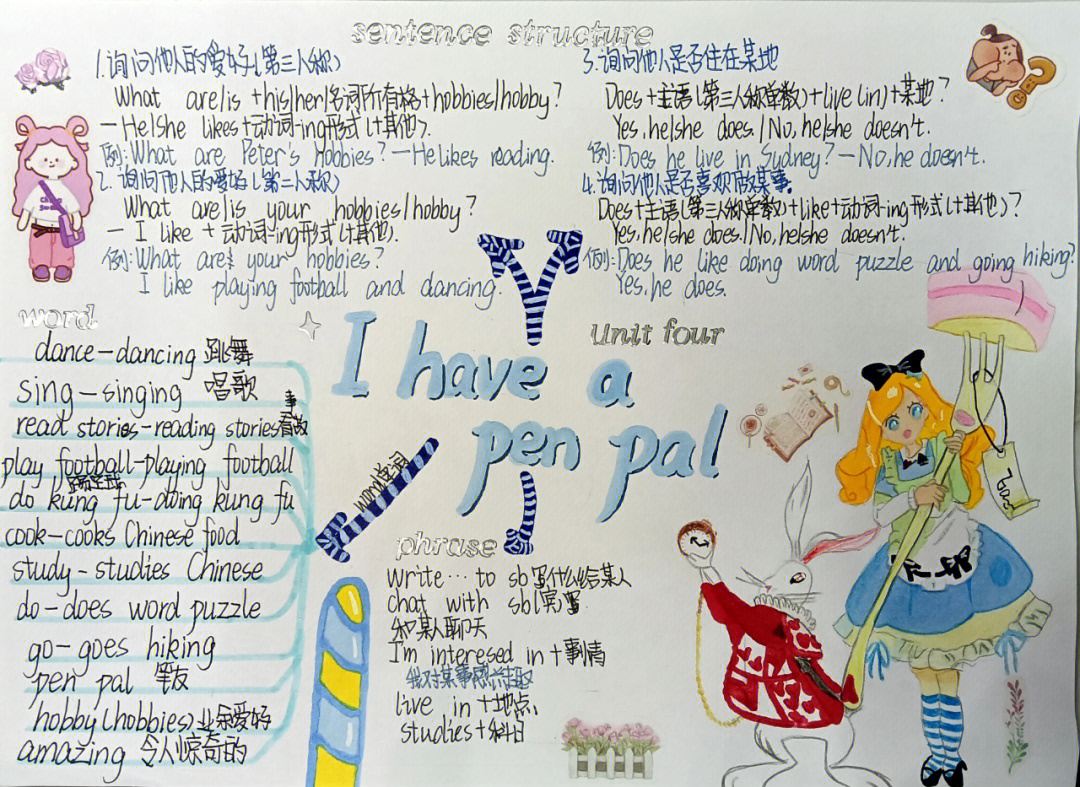 sentence structure
1.询问他人的爱好(第三人称)
What are/is +his/her/名词所有格+hobbies/hobby?
—He/She likes+动词-ing形式(+其他).
例:What are Peter's hobbies?—He likes reading.
2.询问他人的爱好(第二人称)
What are/is your hobbies/hobby?
— I like +动词-ing形式(+其他).
例:What are your hobbies?
I like playing football and dancing.
3.询问他人是否住在某地
Does+主语(第三人称单数)+live(in)+某地?
Yes,he/she does./No,he/she doesn't.
例:Does he live in Sydney?—No,he doesn't.
4.询问他人是否喜欢做某事.
Does+主语(第三人称单数)+like+动词-ing形式(+其他)?
Yes,he/she does./No,he/she doesn't.
例:Does he like doing word puzzle and going hiking?
Yes,he does.
Unit four
I have a
pen pal
word
dance—dancing 跳舞
sing—singing 唱歌
read stories—reading stories看故事
play football—playing football
踢足球
do kung fu—doing kung fu
cook—cooks Chinese food
study—studies Chinese
do—does word puzzle
go—goes hiking
pen pal 笔友
hobby(hobbies)业余爱好
amazing 令人惊奇的
word单词
phrase
write… to sb 写什么给某人
chat with sb(宾
和某人聊天
I'm interesed in +事情
我对某事感兴趣
live in +地点,
studies+科目